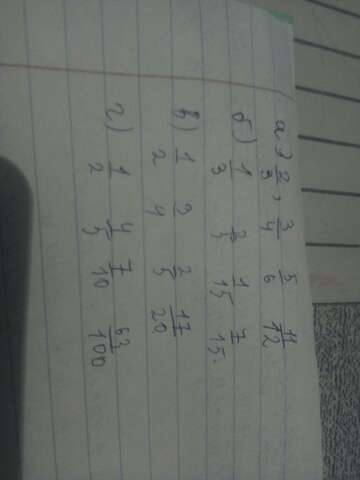 а) 2/3, 3/4 5/6 11/12
б) 1/3 2/5 1/15 7/15.
в) 1/2 3/4 2/5 17/20
г) 1/2 4/5 7/10 62/100